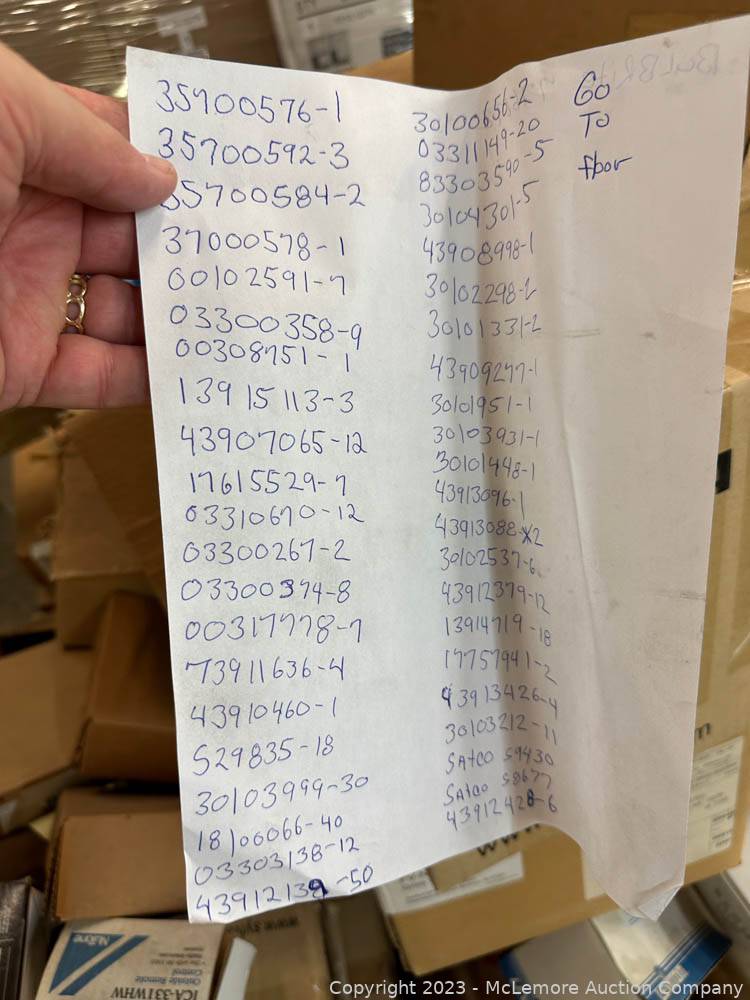 35700576-1
35700592-3
35700584-2
37000578-1
00102591-7
03300358-9
00308751-1
13915113-3
43907065-12
17615529-7
03310670-12
03300267-2
03300374-8
00317778-7
73911636-4
43910460-1
529835-18
30103999-30
18100066-40
03303138-12
43912139-50
30100656-2
03311149-20
83303590-5
30104301-5
43908998-1
30102298-2
30101331-2
43909277-1
30101951-1
30103931-1
30101448-1
43913096-1
43913088-2
30102537-6
43912379-12
13914719-18
17757941-2
43913426-4
30103212-11
SAtco S9430
SAtco S8677
43912428-6
Go
To
floor
Nutone
Outside Remote
Control
ICA-331WHW
www.sylv
Copyright 2023 - McLemore Auction Company